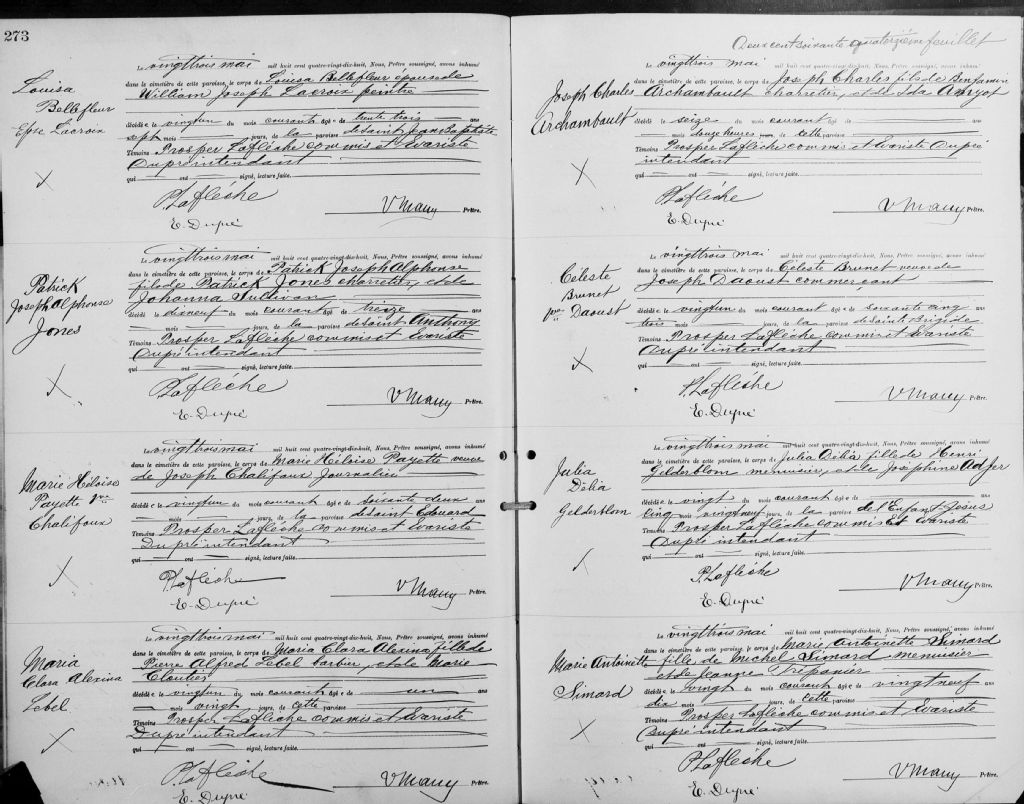 273
Louisa
Bellefleur
Epse Lacroix
Le vingttrois mai mil huit cent quatre-vingt-dix-huit, Nous, Prêtre soussigné, avons inhumé
dans le cimetière de cette paroisse, le corps de Louisa Bellefleur epouse de
William Joseph Lacroix peintre
décédé e le vingtun du mois courant âgé e de trente trois ans
sept mois jours, de la paroisse de saint Jean Baptiste
Témoins Prosper Laflèche commis et Evariste
Dupré intendant
qui ont signé, lecture faite.
P. Laflèche
V Mauy Prêtre.
E. Dupré
Patrick
Joseph Alphonse
Jones
Le vingttrois mai mil huit cent quatre-vingt-dix-huit, Nous, Prêtre soussigné, avons inhumé
dans le cimetière de cette paroisse, le corps de Patrick Joseph Alphonse
fils de Patrick Jones charretier, et de
Johanna Sullivan
décédé le dixneuf du mois courant âgé de treize ans
mois jours, de la paroisse de saint Anthony
Témoins Prosper Laflèche commis et Evariste
Dupré intendant
qui ont signé, lecture faite.
P. Laflèche
V Mauy Prêtre.
E. Dupré
Marie Héloïse
Payette Vve
Chalifoux
Le vingttrois mai mil huit cent quatre-vingt-dix-huit, Nous, Prêtre soussigné, avons inhumé
dans le cimetière de cette paroisse, le corps de Marie Héloïse Payette veuve
de Joseph Chalifoux Journalier
décédé e le vingtun du mois courant âgé e de soixante deux ans
mois jours, de la paroisse de saint Edouard
Témoins Prosper Laflèche commis et Evariste
Dupré intendant
qui ont signé, lecture faite.
P. Laflèche
V Mauy Prêtre.
E. Dupré
Maria
Clara Alexina
Lebel
Le vingttrois mai mil huit cent quatre-vingt-dix-huit, Nous, Prêtre soussigné, avons inhumé
dans le cimetière de cette paroisse, le corps de Maria Clara Alexina fille de
Pierre Alfred Lebel barbier, et de Marie
Cloutier
décédé e le vingtun du mois courant âgé e de un an
mois vingt jours, de cette paroisse
Témoins Prosper Laflèche commis et Evariste
Dupré intendant
qui ont signé, lecture faite.
P. Laflèche
V Mauy Prêtre.
E. Dupré
Deux cent soixante quatorzième feuillet
Joseph Charles
Archambault
Le vingttrois mai mil huit cent quatre-vingt-dix-huit, Nous, Prêtre soussigné, avons inhumé
dans le cimetière de cette paroisse, le corps de Joseph Charles fils de Benjamin
Archambault charretier, et de Ida Amyot
décédé le seize du mois courant âgé de ans
mois douze heures jours, de cette paroisse
Témoins Prosper Laflèche commis et Evariste Dupré
intendant
qui ont signé, lecture faite.
P Laflèche
V Mauy Prêtre.
E. Dupré
Céleste
Brunet
Vve Daoust
Le vingttrois mai mil huit cent quatre-vingt-dix-huit, Nous, Prêtre soussigné, avons inhumé
dans le cimetière de cette paroisse, le corps de Céleste Brunet veuve de
Joseph Daoust commerçant
décédé e le vingtun du mois courant âgé e de soixante cinq ans
trois mois jours, de la paroisse de sainte Brigide
Témoins Prosper Laflèche commis et Evariste
Dupré intendant
qui ont signé, lecture faite.
P. Laflèche
V Mauy Prêtre.
E. Dupré
Julia
Délia
Gelderblom
Le vingttrois mai mil huit cent quatre-vingt-dix-huit, Nous, Prêtre soussigné, avons inhumé
dans le cimetière de cette paroisse, le corps de Julia Délia fille de Henri
Gelderblom menuisier, et de Joséphine
décédé e le vingt du mois courant âgé e de ans
cinq mois vingtneuf jours, de la paroisse de l'Enfant Jésus
Témoins Prosper Laflèche commis et Evariste
Dupré intendant
qui ont signé, lecture faite.
P. Laflèche
V Mauy Prêtre.
E. Dupré
Marie Antoinette
Simard
Le vingttrois mai mil huit cent quatre-vingt-dix-huit, Nous, Prêtre soussigné, avons inhumé
dans le cimetière de cette paroisse, le corps de Marie Antoinette
fille de Michel Simard menuisier
et de Jeanne Trépanier
décédé e le vingt du mois courant âgé e de vingtneuf ans
dix mois jours, de cette paroisse
Témoins Prosper Laflèche commis et Evariste
Dupré intendant
qui ont signé, lecture faite.
P Laflèche
V Mauy Prêtre.
E. Dupré